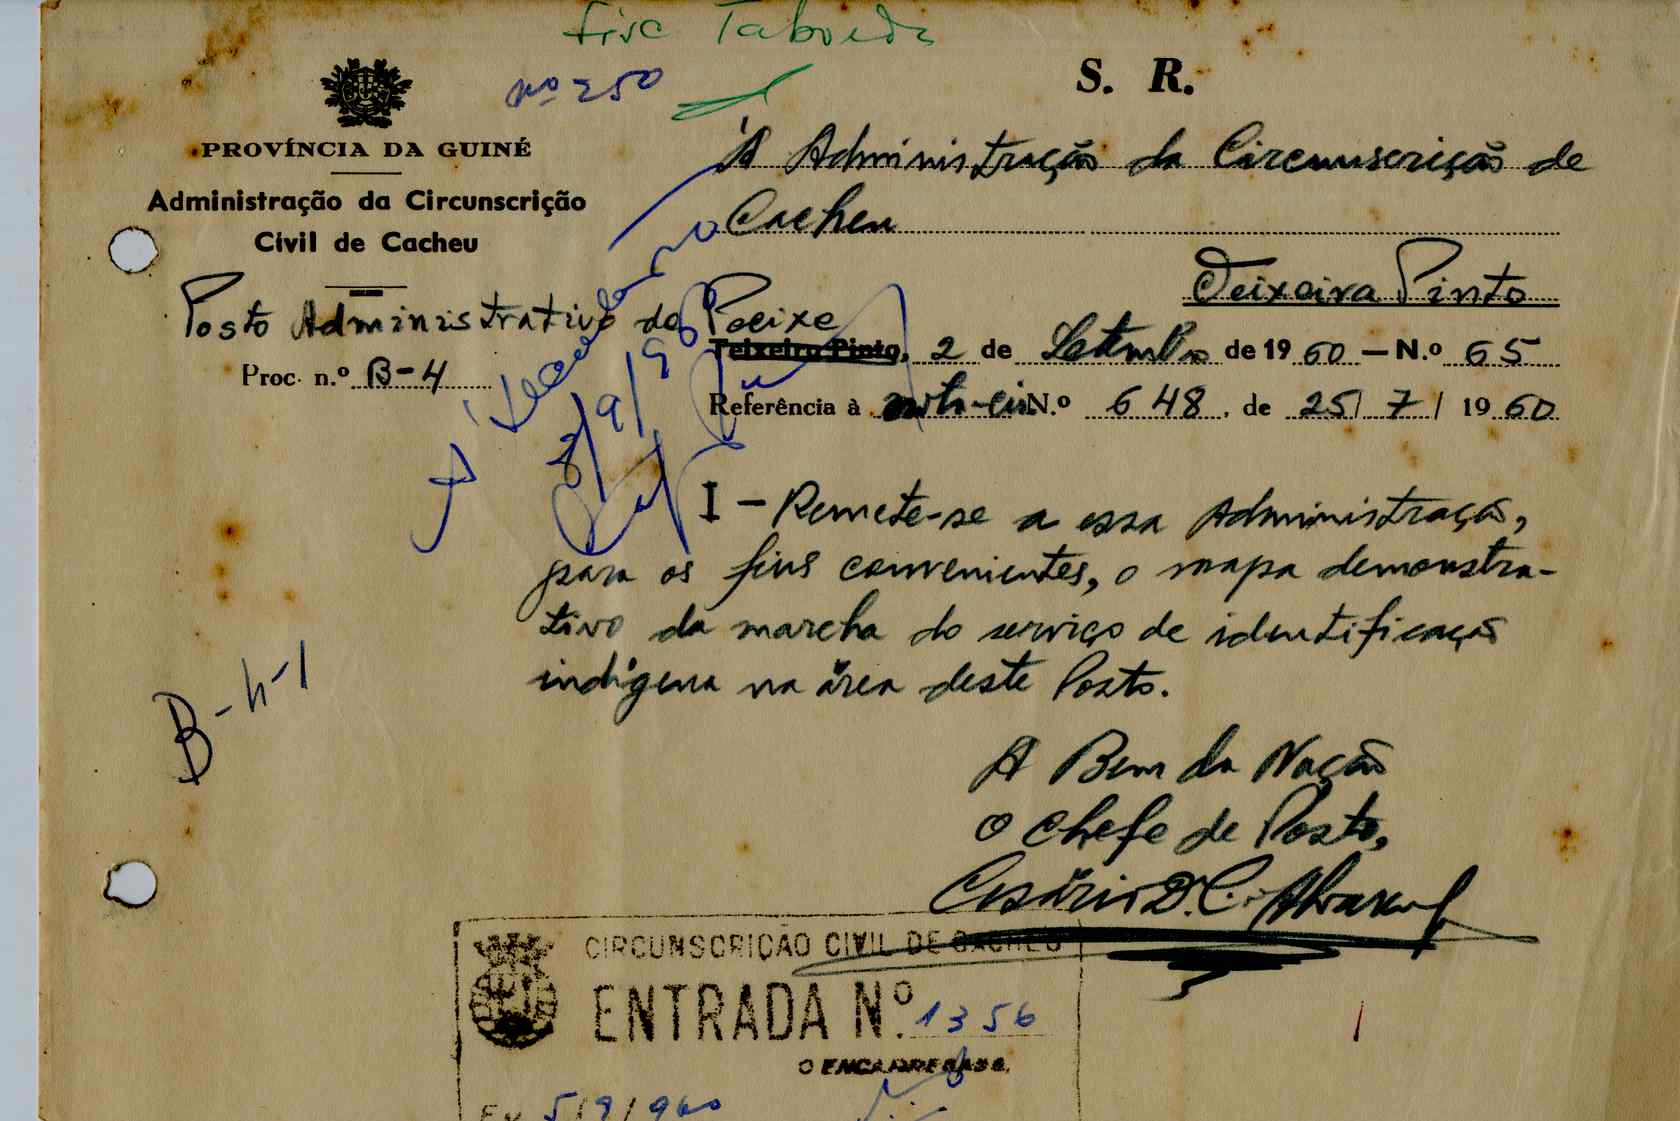 nº 250
S. R.
PROVÍNCIA DA GUINÉ
Administração da Circunscrição
Civil de Cacheu
À Administração da Circunscrição de
Cacheu
Teixeira Pinto
Posto Administrativo de Pecixe
Proc. n.º B-4
Teixeira Pinto, 2 de Setembro de 1960 — N.º 65
Referência à nota-cir. N.º 648, de 25/7/1960
8/9/960
I - Remete-se a essa Administração,
para os fins convenientes, o mapa demonstra-
tivo da marcha do serviço de identificação
indígena na área deste Posto.
B-4-1
A Bem da Nação
O Chefe de Posto,
Cesário D. C. Alvarenga
CIRCUNSCRIÇÃO CIVIL DE CACHEU
ENTRADA N.º 1356
O ENCARREGADO,
Em 5/9/960